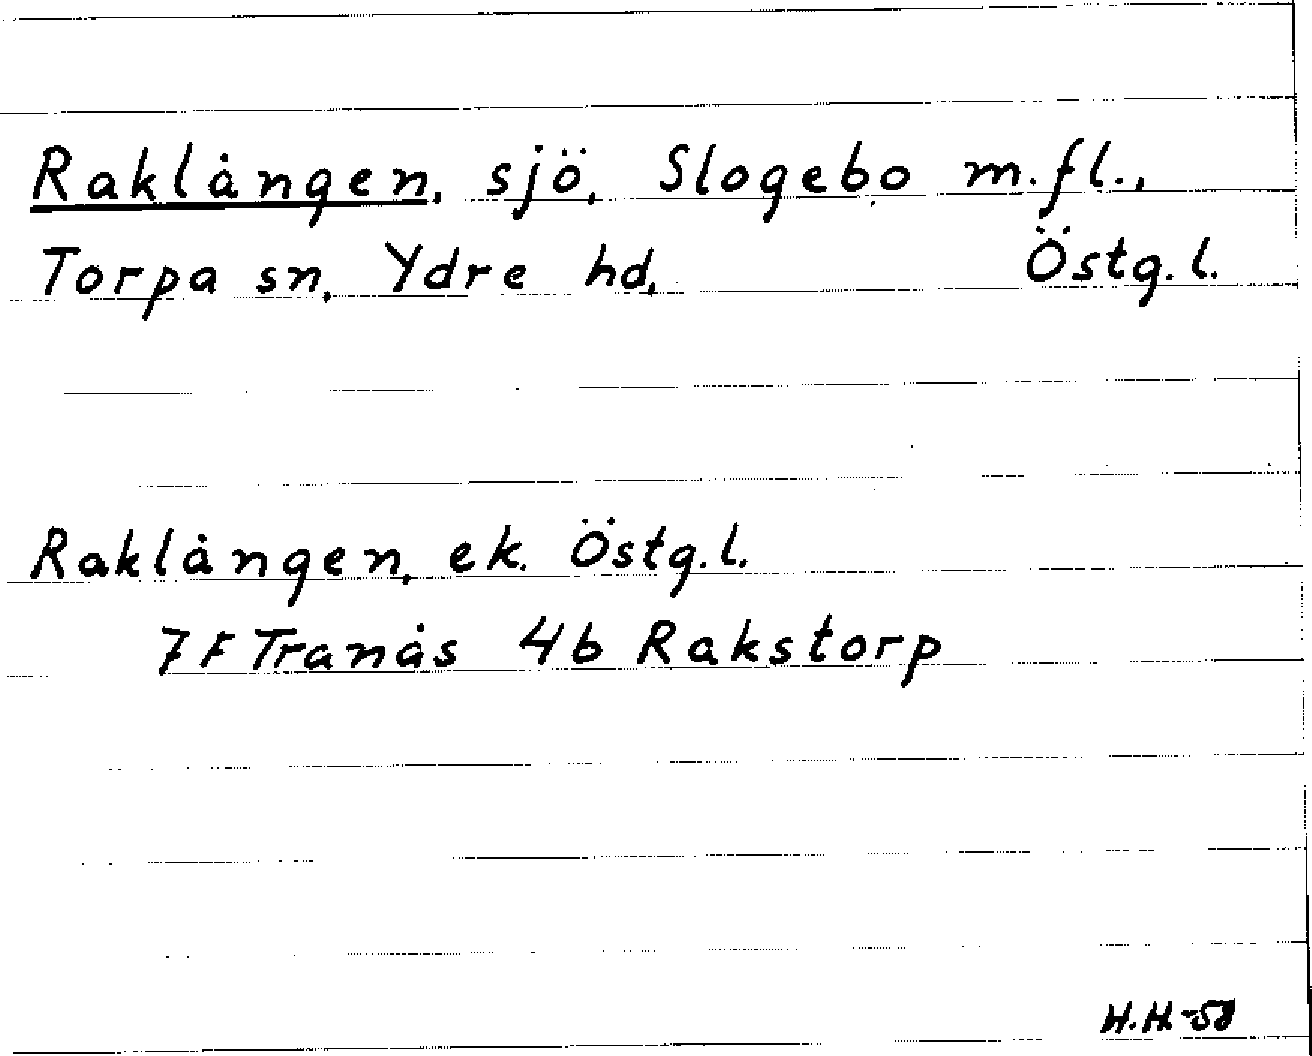 Raklången, sjö, Slogebo m.fl.,
Torpa sn, Ydre hd, Östg.l.
Raklången, ek. Östg.l.
7F Tranås 4b Rakstorp
H.H.